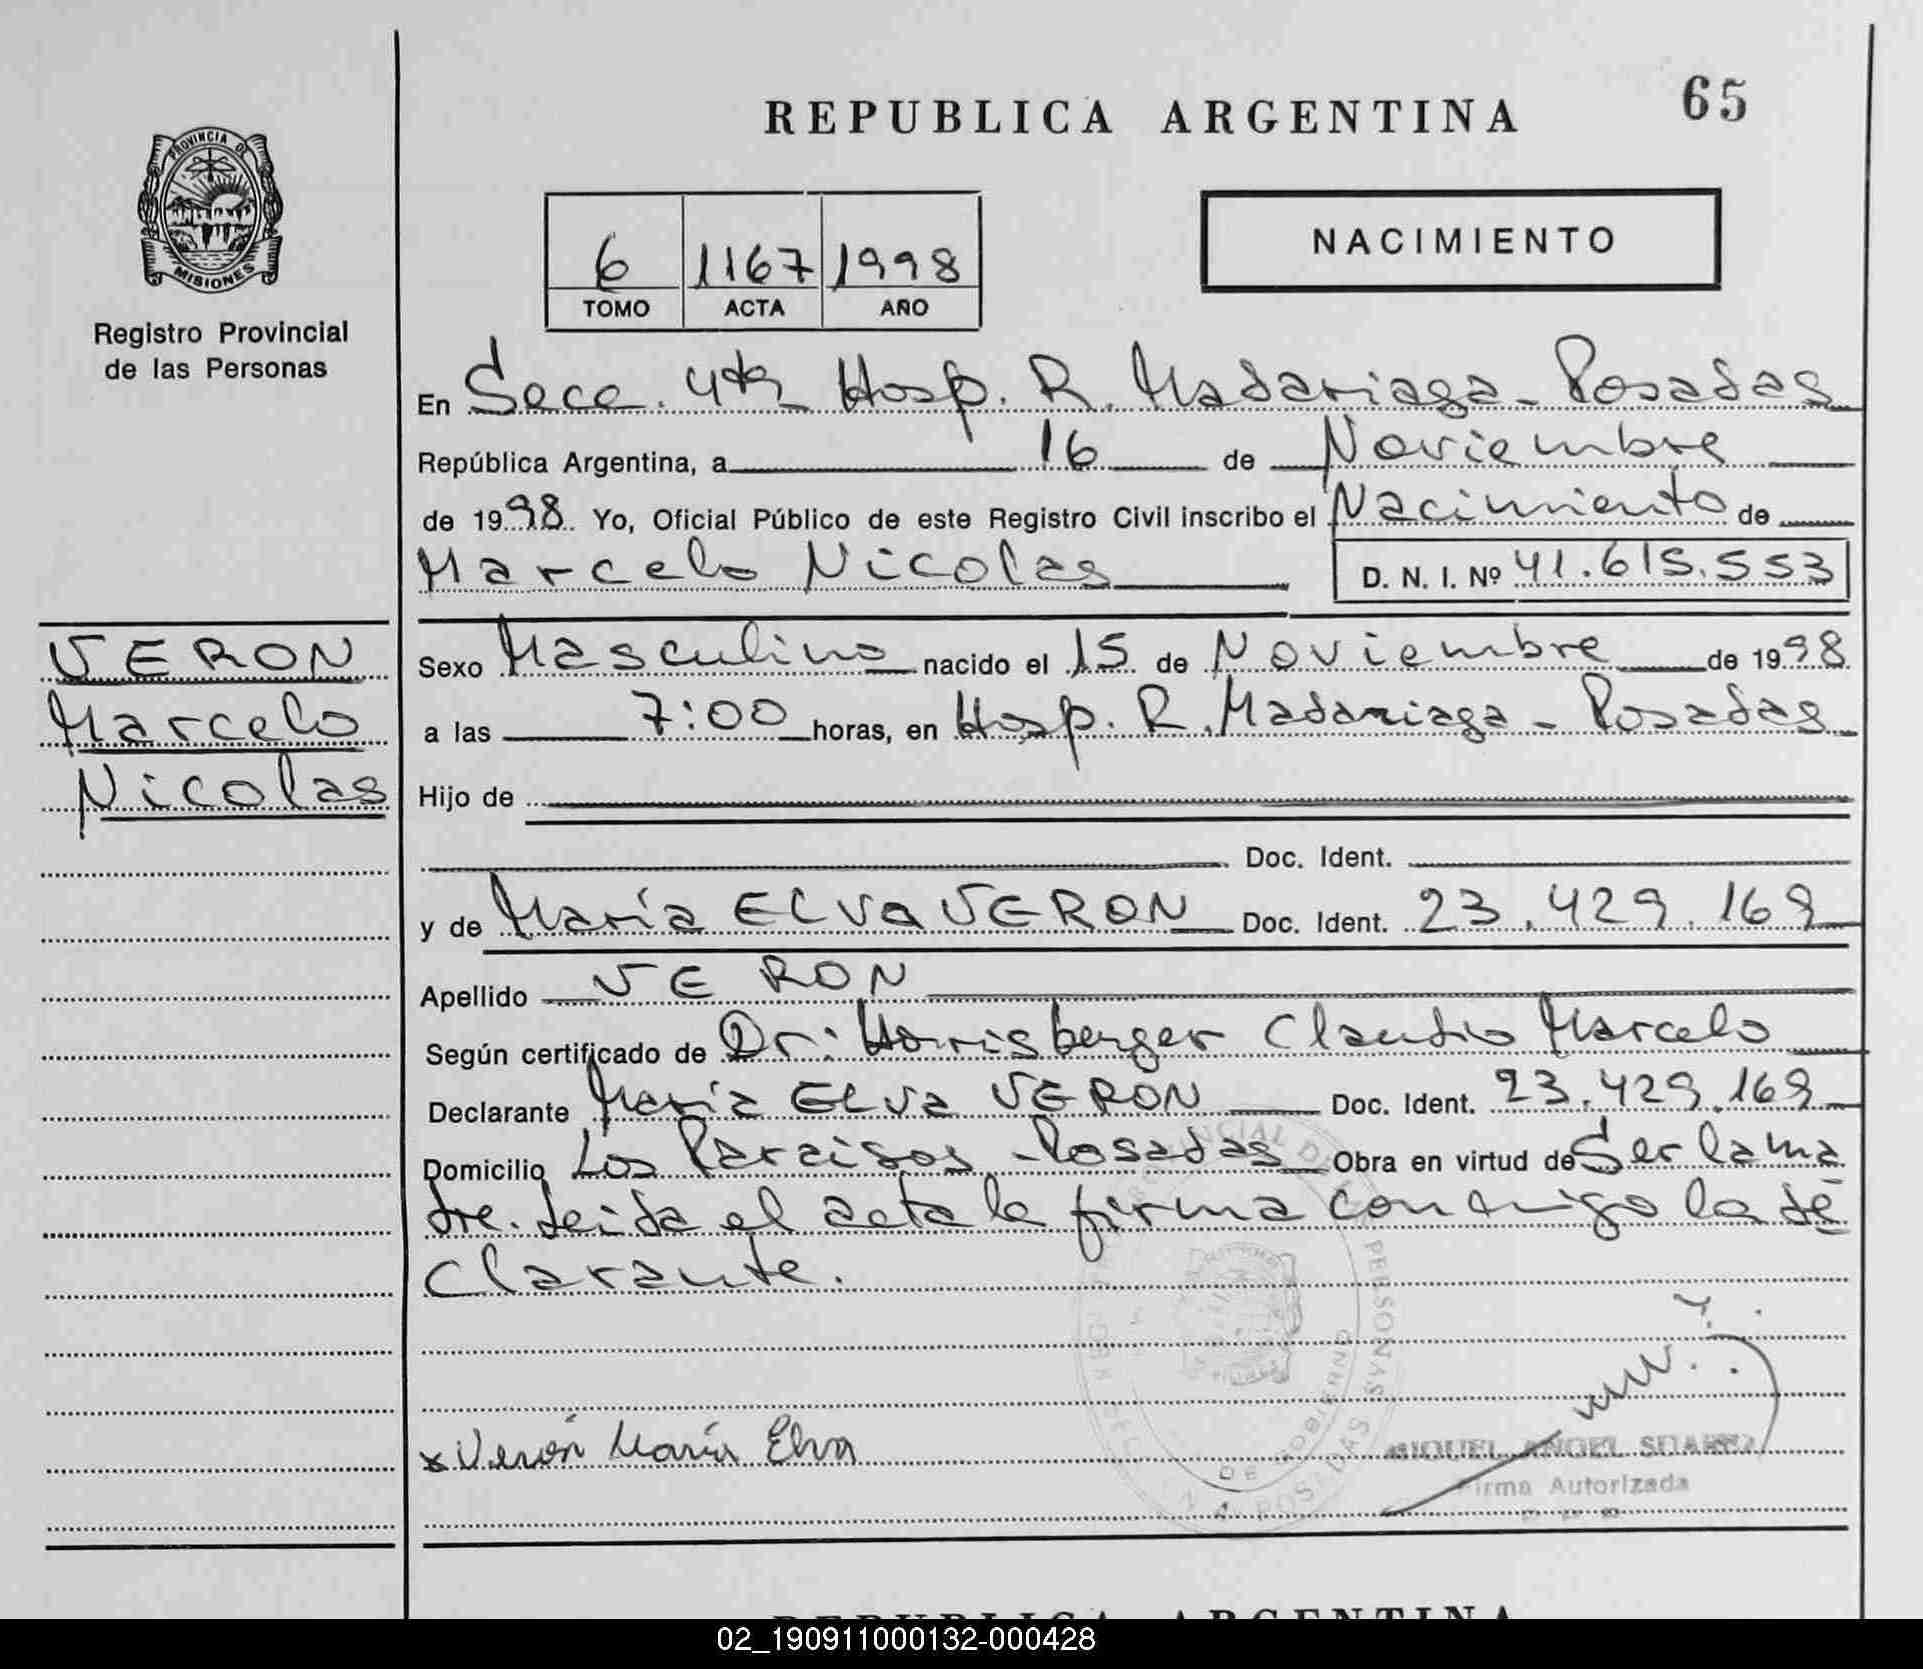 REPUBLICA ARGENTINA
65
PROVINCIA DE
MISIONES
Registro Provincial
de las Personas
6 1167 1998
TOMO ACTA AÑO
NACIMIENTO
En Secc. 4ta Hosp. R. Madariaga - Posadas
República Argentina, a 16 de Noviembre
de 1998 Yo, Oficial Público de este Registro Civil inscribo el Nacimiento de
Marcelo Nicolas D. N. I. Nº 41.615.553
VERON
Marcelo
Nicolas
Sexo Masculino nacido el 15 de Noviembre de 1998
a las 7:00 horas, en Hosp. R. Madariaga - Posadas
Hijo de
Doc. Ident.
y de María ELVa VERON Doc. Ident. 23.429.169
Apellido VERON
Según certificado de Dr: Claudio Marcelo
Declarante María ELVa VERON Doc. Ident. 23.429.169
Domicilio Los Paraisos - Posadas Obra en virtud de Ser la ma
dre. Leida el acta la firma conmigo la de
clarante.
x Verón María Elva
MIGUEL ANGEL SUAREZ
Firma Autorizada
REPUBLICA ARGENTINA
02_190911000132-000428